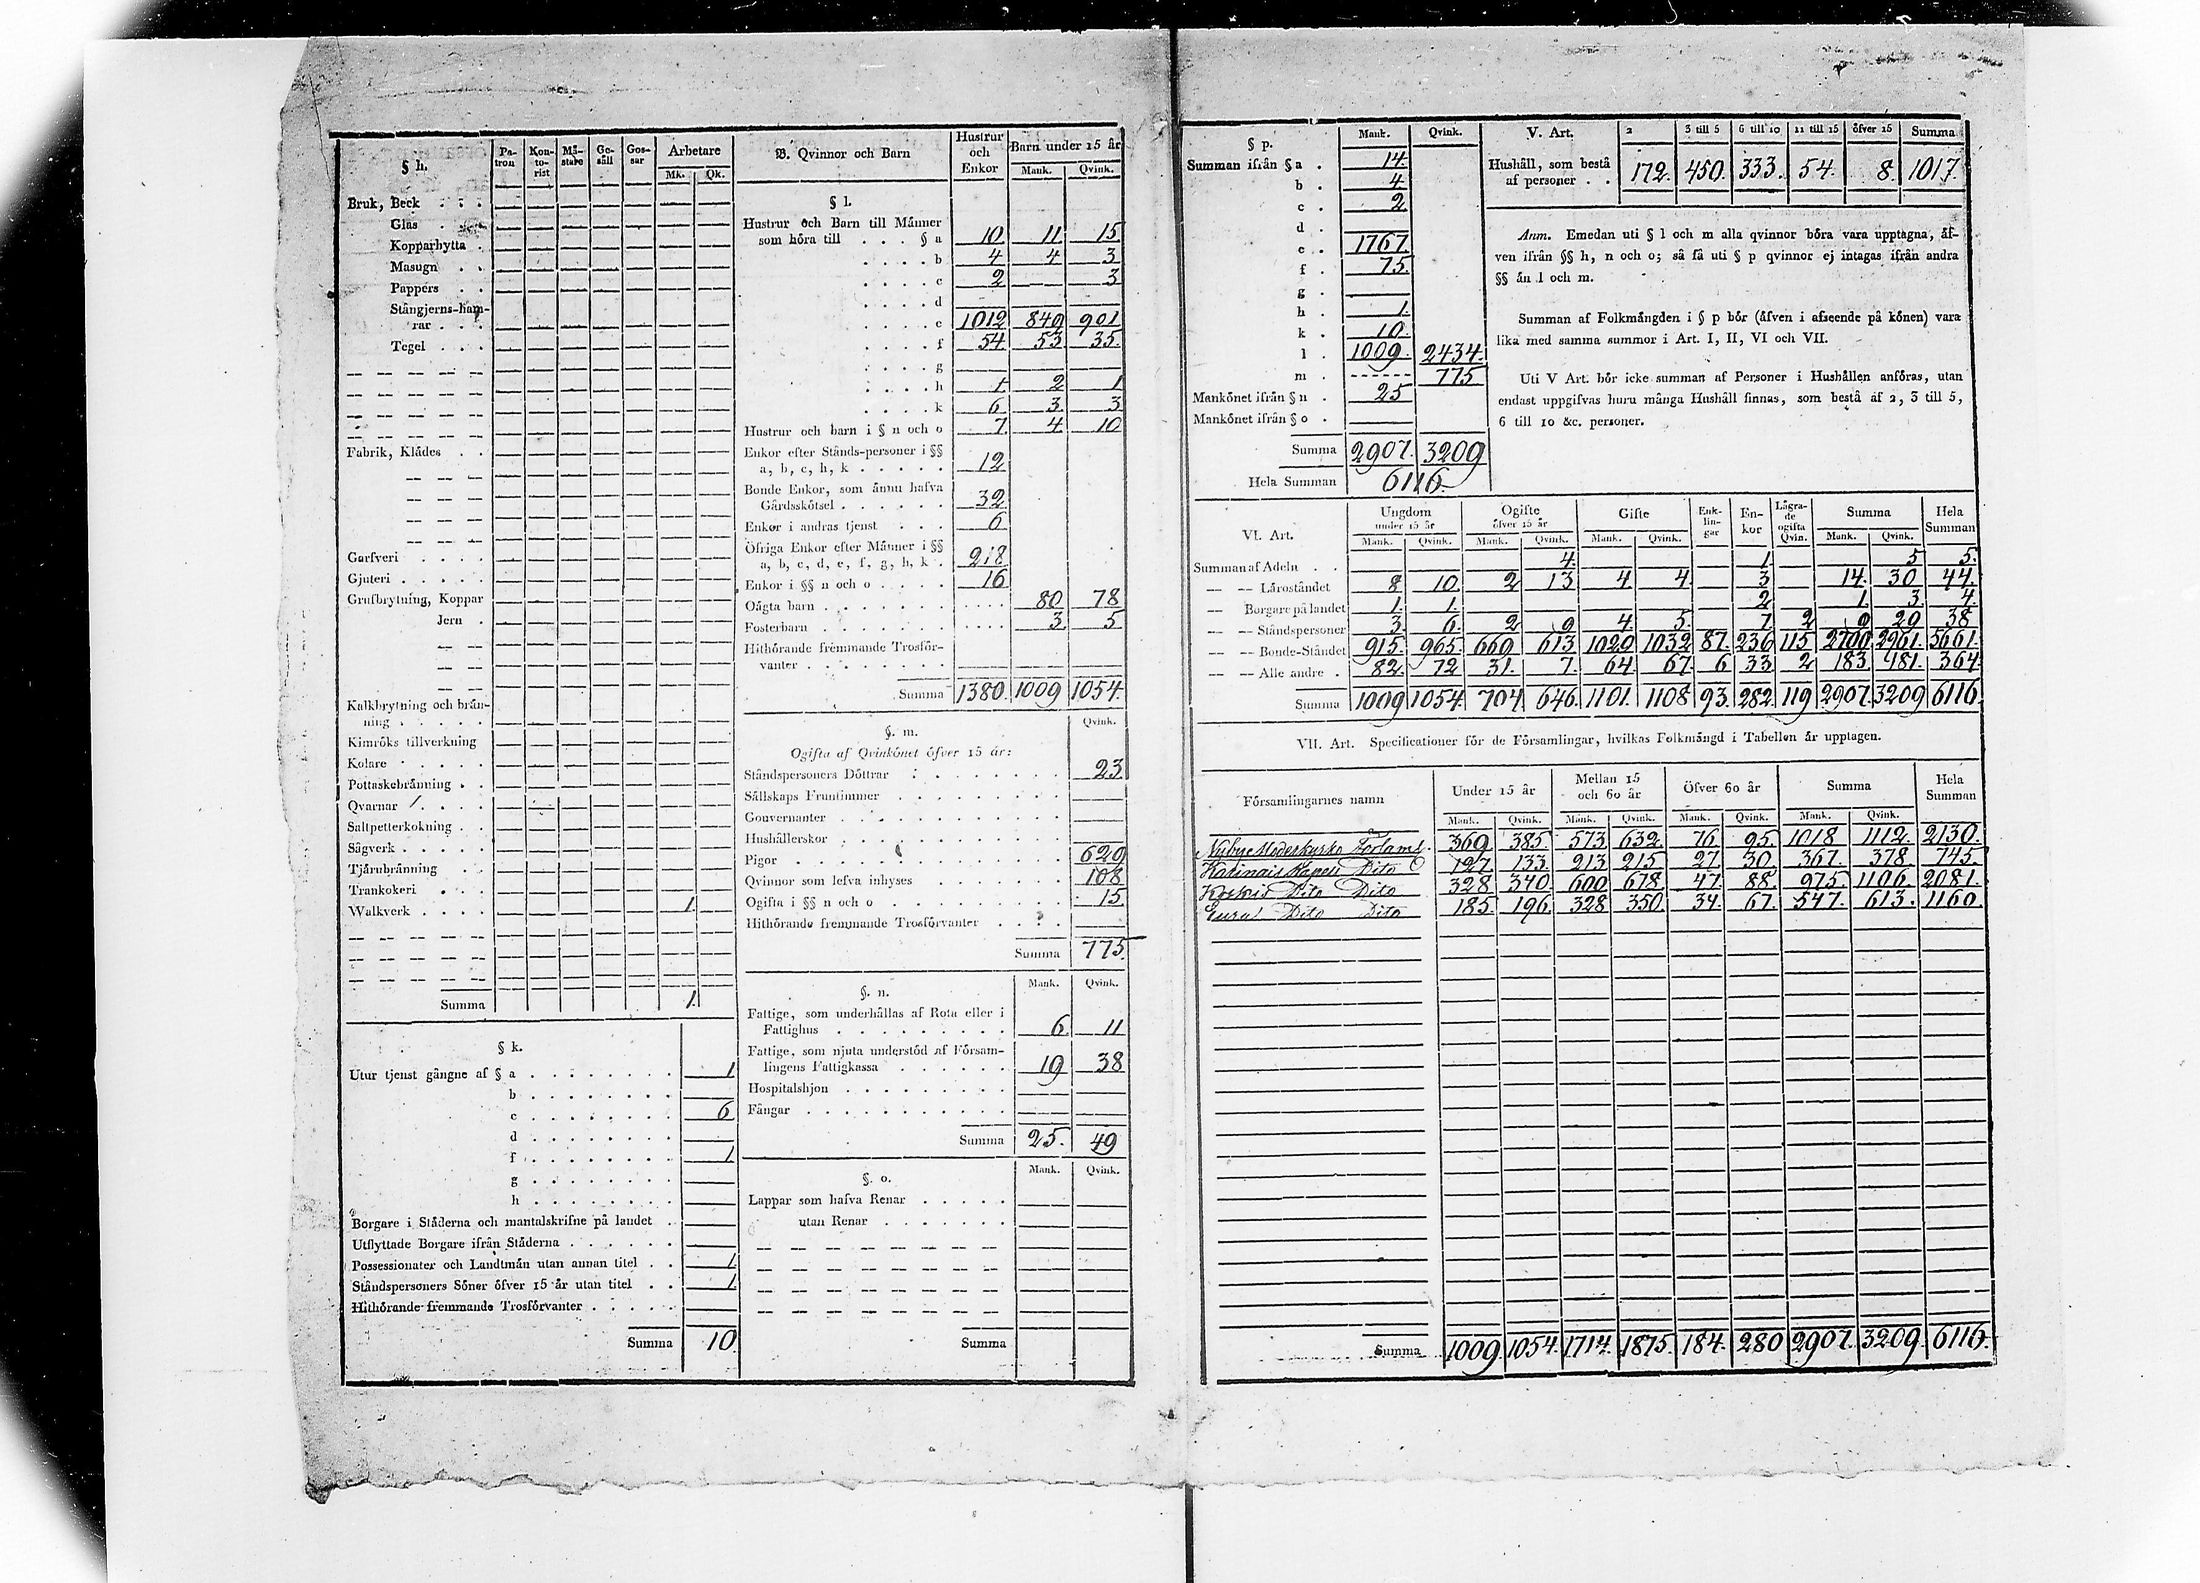 § h.
Pa-tron Kon-to-rist Mä-stare Ge-säll Gos-sar Arbetare
Mk. Qk.
Bruk, Beck . . .
Glas . .
Kopparhytta .
Masugn . .
Pappers . .
Stångjerns-ham-
rar . . .
Tegel . . .
Fabrik, Klädes . .
Garfveri . . . .
Gjuteri . . . . .
Grufbrytning, Koppar
Jern .
Kalkbrytning och brän-
ning . . . . .
Kimröks tillverkning
Kolare . . . . .
Pottaskebränning . .
Qvarnar . . . .
Saltpetterkokning . .
Sågverk . . . . .
Tjärubränning . .
Trankokeri . . .
Walkverk . . . . 1.
Summa 1.
§ k.
Utur tjenst gångne af § a . . . . . . . 1
b . . . . . . . .
c . . . . . . . . 6
d . . . . . . . .
f . . . . . . . . 1
g . . . . . . . .
h . . . . . . . .
Borgare i Städerna och mantalskrifne på landet .
Utflyttade Borgare ifrån Städerna . . . . . .
Possessionater och Landtmän utan annan titel . . 1.
Ståndspersoners Söner öfver 15 år utan titel . . 1
Hithörande fremmande Trosförvanter . . . . .
Summa 10
B. Qvinnor och Barn
Hustrur och Enkor
Barn under 15 år
Mank. Qvink.
§ l.
Hustrur och Barn till Männer
som höra till . . . § a 10 11 15
. . . . b 4 4 3
. . . . c 2 — 3
. . . . d
. . . . e 1012 849 901
. . . . f 54 53 35.
. . . . g
. . . . h 1. 2 1
. . . . k 6 3 3
Hustrur och barn i § n och o 7. 4 10
Enkor efter Stånds-personer i §§
a, b, c, h, k . . . . . 12
Bonde Enkor, som ännu hafva
Gårdsskötsel . . . . . . 32
Enkor i andras tjenst . . . 6
Öfriga Enkor efter Männer i §§
a, b, c, d, e, f, g, h, k . 218
Enkor i §§ n och o . . . . 16
Oägta barn . . . . . . . . . . . . 80 78
Fosterbarn . . . . . . . . . . . . 3 5
Hithörande fremmande Trosför-
vanter . . . . . . . .
Summa 1380. 1009 1054
§. m. Qvink.
Ogifta af Qvinkönet öfver 15 år:
Ståndspersoners Döttrar . . . . . . . . 23
Sällskaps Fruntimmer . . . . . . . . .
Gouvernanter . . . . . . . . . . . .
Hushållerskor . . . . . . . . . . .
Pigor . . . . . . . . . . . . . 629
Qvinnor som lefva inhyses . . . . . . . 108
Ogifta i §§ n och o . . . . . . . . . . 15
Hithörande fremmande Trosförvanter . . . .
Summa 775
§. n. Mank. Qvink.
Fattige, som underhållas af Rota eller i
Fattighus . . . . . . . . . 6 11
Fattige, som njuta understöd af Försam-
lingens Fattigkassa . . . . . . 19 38
Hospitalshjon . . . . . . . . .
Fångar . . . . . . . . . . .
Summa 25. 49
§. o. Mank. Qvink.
Lappar som hafva Renar . . . . .
utan Renar . . . . . . .
Summa
§ p. Mank. Qvink.
Summan ifrån § a . 14.
b . 4
c . 2
d .
e . 1767.
f . 75.
g .
h . 1.
k . 10.
l . 1009. 2434.
m . ------ 775
Mankönet ifrån § n . 25
Mankönet ifrån § o .
Summa 2907. 3209
Hela Summan 6116.
V. Art. 2 3 till 5 6 till 10 11 till 15 öfver 15 Summa
Hushåll, som bestå
af personer . . 172. 450. 333. 54. 8. 1017.
Anm. Emedan uti § l och m alla qvinnor böra vara upptagna, äf-
ven ifrån §§ h, n och o; så få uti § p qvinnor ej intagas ifrån andra
§§ än l och m.
Summan af Folkmängden i § p bör (äfven i afseende på könen) vara
lika med samma summor i Art. I, II, VI och VII.
Uti V Art. bör icke summan af Personer i Hushållen anföras, utan
endast uppgifvas huru många Hushåll finnas, som bestå af 2, 3 till 5,
6 till 10 &c. personer.
VI. Art.
Ungdom under 15 år Ogifte öfver 15 år Gifte Enk-lin-gar En-kor Lägra-de ogifta Qvin. Summa Hela Summan
Mank. Qvink. Mank. Qvink. Mank. Qvink. Mank. Qvink.
Summan af Adeln . . 4. 1. 5 5.
— — Läroståndet 8 10. 2 13 4 4. 3 14. 30 44.
— Borgare på landet 1. 1. 2 1. 3. 4.
— — Ståndspersoner 3. 6. 2 9 4. 5. 7. 2 9 29 38
— — Bonde-Ståndet 915. 965. 669 613 1029 1032 87. 236 115 2700 2961. 5661.
— — Alle andre . 82. 72 31. 7. 64 67. 6 33 2 183. 181. 364
Summa 1009 1054. 704. 646. 1101. 1108. 93. 282. 119 2907. 3209 6116.
VII. Art. Specificationer för de Församlingar, hvilkas Folkmängd i Tabellen är upptagen.
Församlingarnes namn Under 15 år Mellan 15 och 60 år Öfver 60 år Summa Hela Summan
Mank. Qvink. Mank. Qvink. Mank. Qvink. Mank. Qvink.
Moderkyrko Församl. 369 385. 573 632. 76 95. 1018 1112. 2130.
Kapell Dito 127 133 213 215. 27 30. 367. 378. 745.
Dito Dito 328 340 600 678 47. 88. 975. 1106. 2081.
Eura Dito Dito 185. 196. 328 350. 34. 67. 547. 613. 1160.
Summa 1009. 1054. 1714. 1875. 184. 280 2907. 3209. 6116.